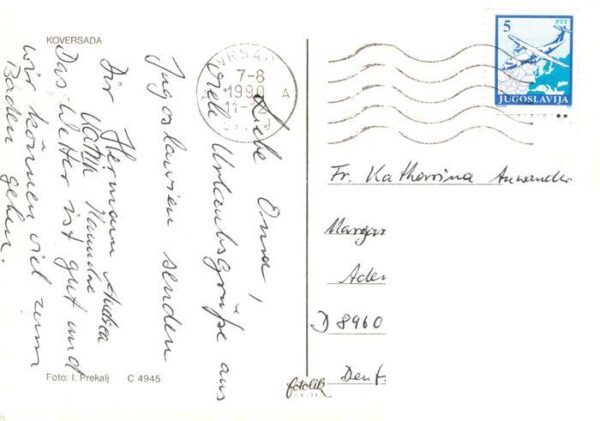 KOVERSADA
Liebe Oma,
Viele Urlaubsgrüße aus
Jugoslawien senden
Dir Hermann Andrea
Das Wetter ist gut und
wir können viel zum
Baden gehen.
Foto: I. Prekalj C 4945
fotolik
VRSAR
7-8
1990
A
5
PTT
JUGOSLAVIJA
Fr. Katharina Anwander
D 8960